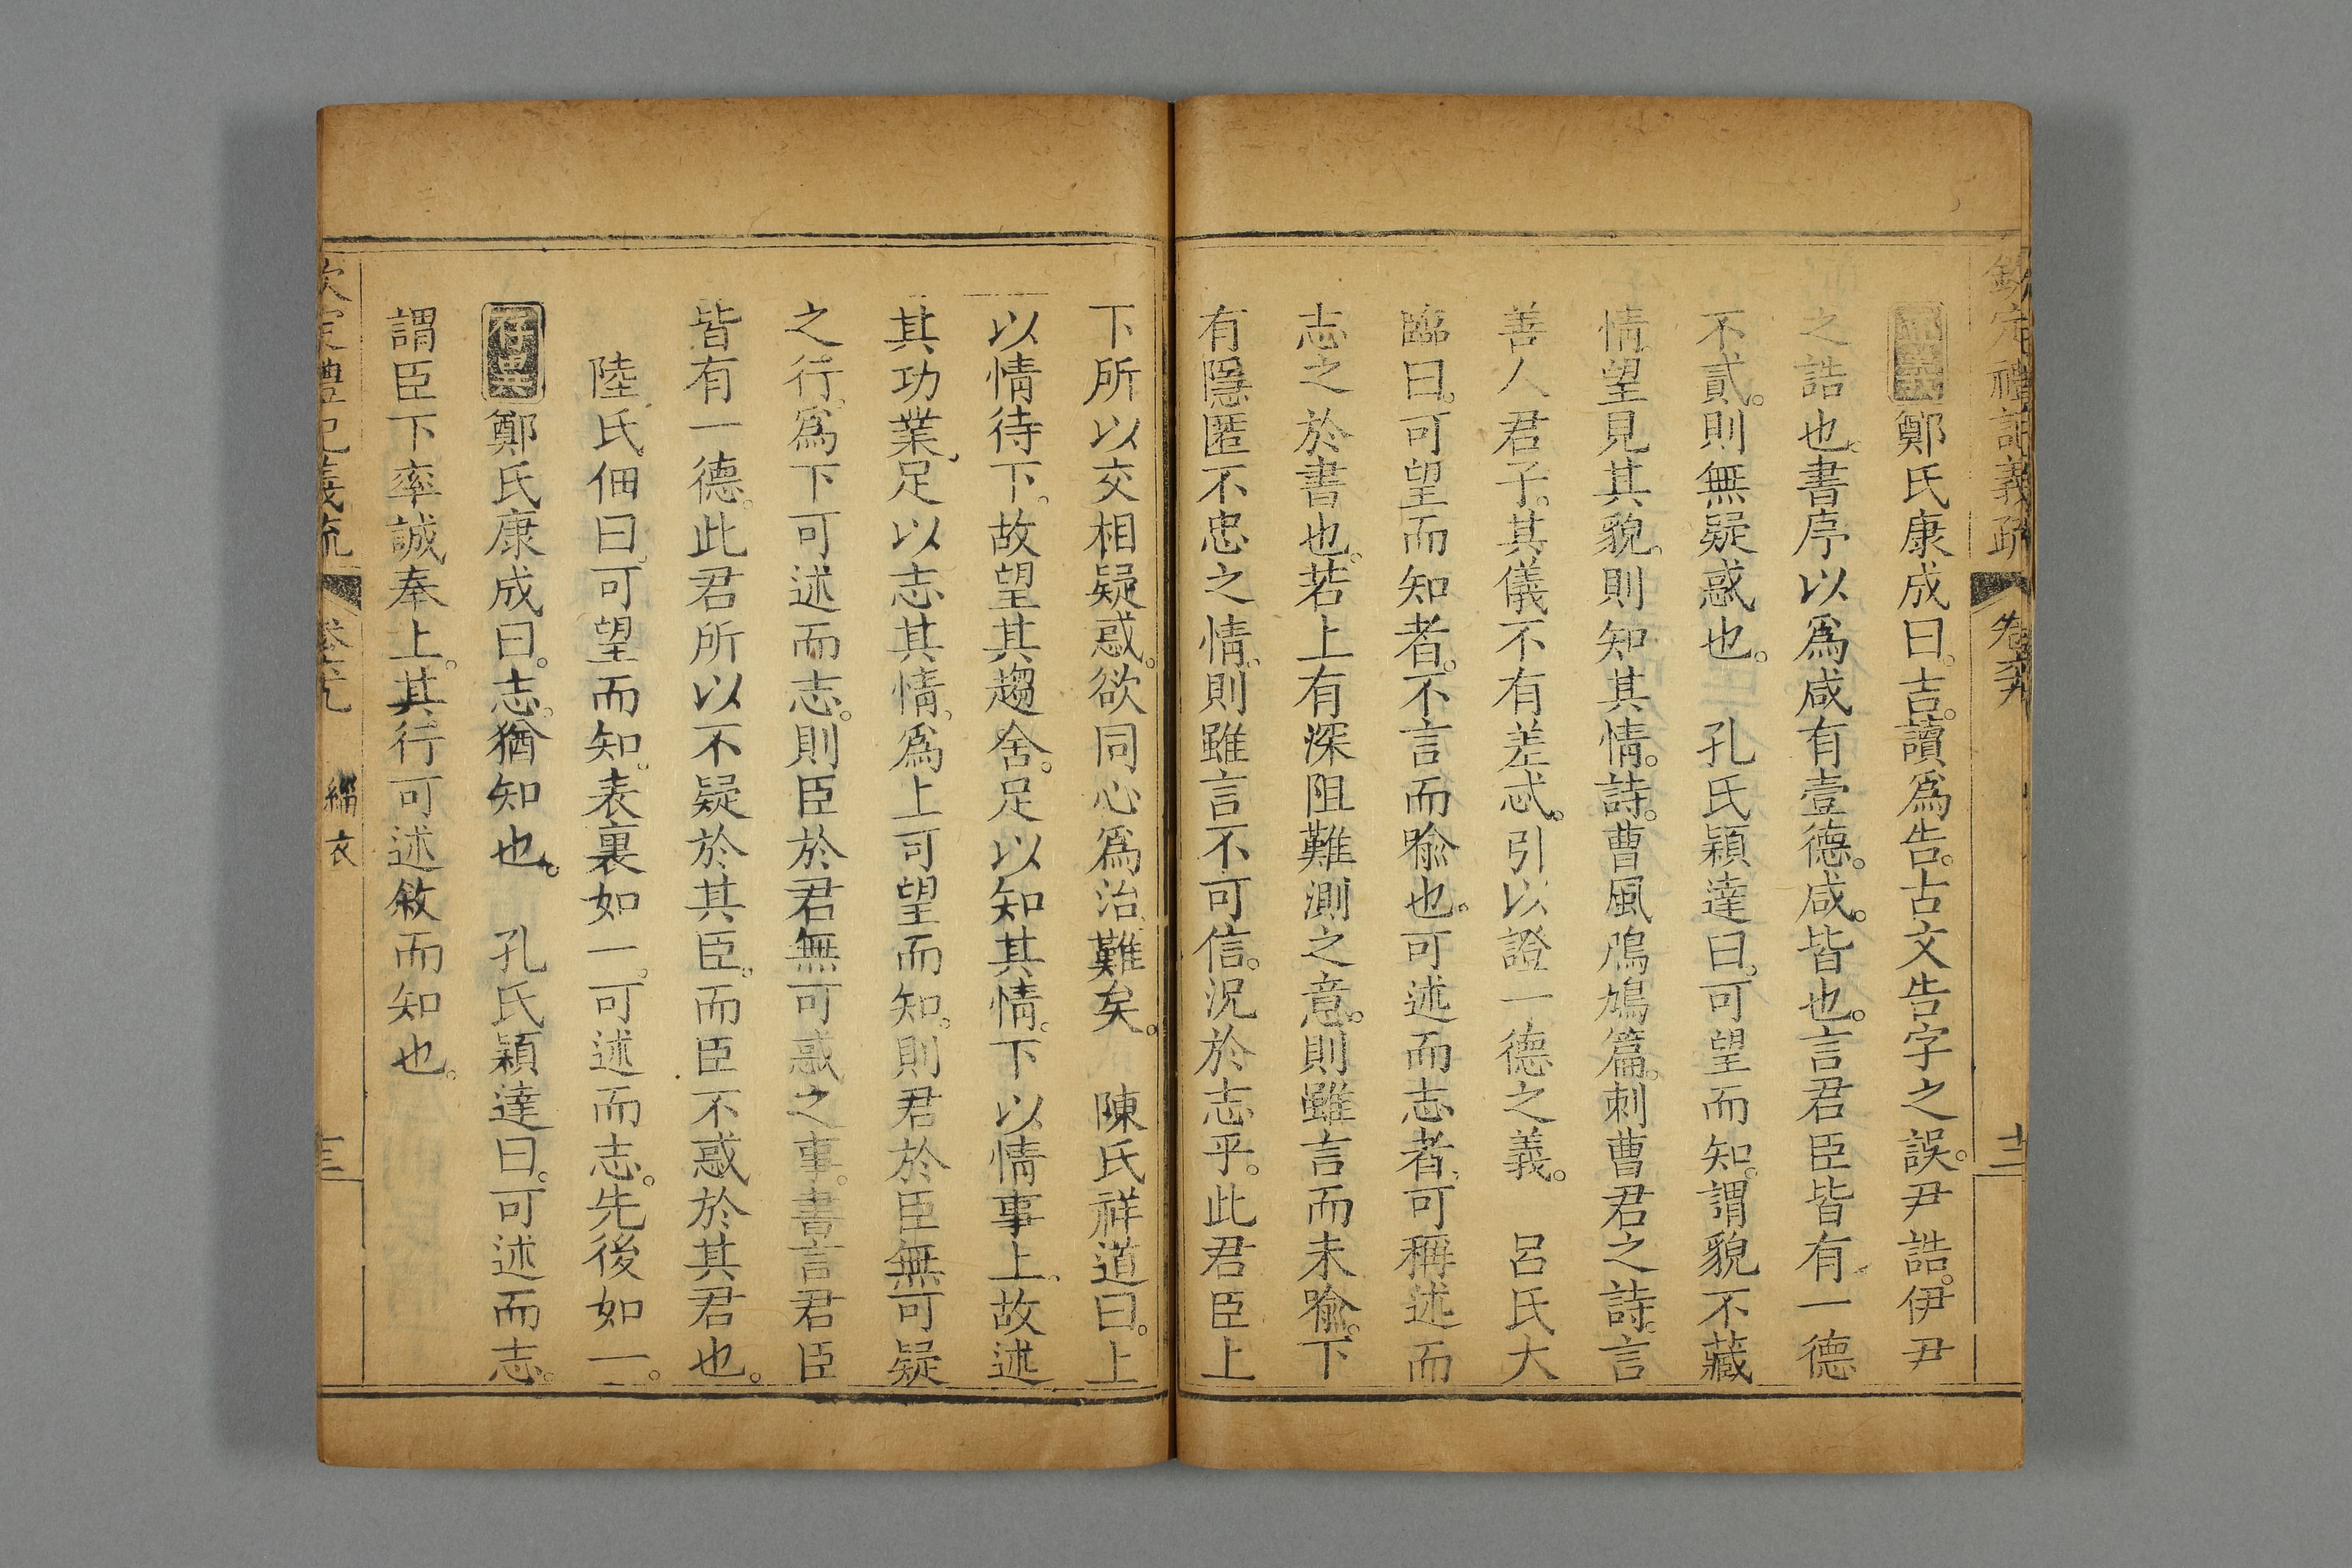 欽定禮記義疏 卷 十二
正義鄭氏康成曰。吉。讀爲告。古文告字之誤。尹誥。伊尹
之誥也。書序以爲咸有壹德。咸。皆也。言君臣皆有一德
不貳。則無疑惑也。 孔氏穎達曰。可望而知。謂貌不藏
情。望見其貌。則知其情。詩。曹風鳲鳩篇。刺曹君之詩。言
善人君子。其儀不有差忒。引以證一德之義。 呂氏大
臨曰。可望而知者。不言而喩也。可述而志者。可稱述而
志之於書也。若上有深阻難測之意。則雖言而未喩。下
有隱匿不忠之情。則雖言不可信。況於志乎。此君臣上
下所以交相疑惑。欲同心爲治。難矣。 陳氏祥道曰。上
以情待下。故望其趨舍。足以知其情。下以情事上。故述
其功業。足以志其情。爲上可望而知。則君於臣無可疑
之行。爲下可述而志。則臣於君無可惑之事。書言君臣
皆有一德。此君所以不疑於其臣。而臣不惑於其君也。
陸氏佃曰。可望而知。表裏如一。可述而志。先後如一。
存異鄭氏康成曰。志。猶知也。 孔氏穎達曰。可述而志。
謂臣下率誠奉上。其行可述敘而知也。
欽定禮記義疏 緇衣